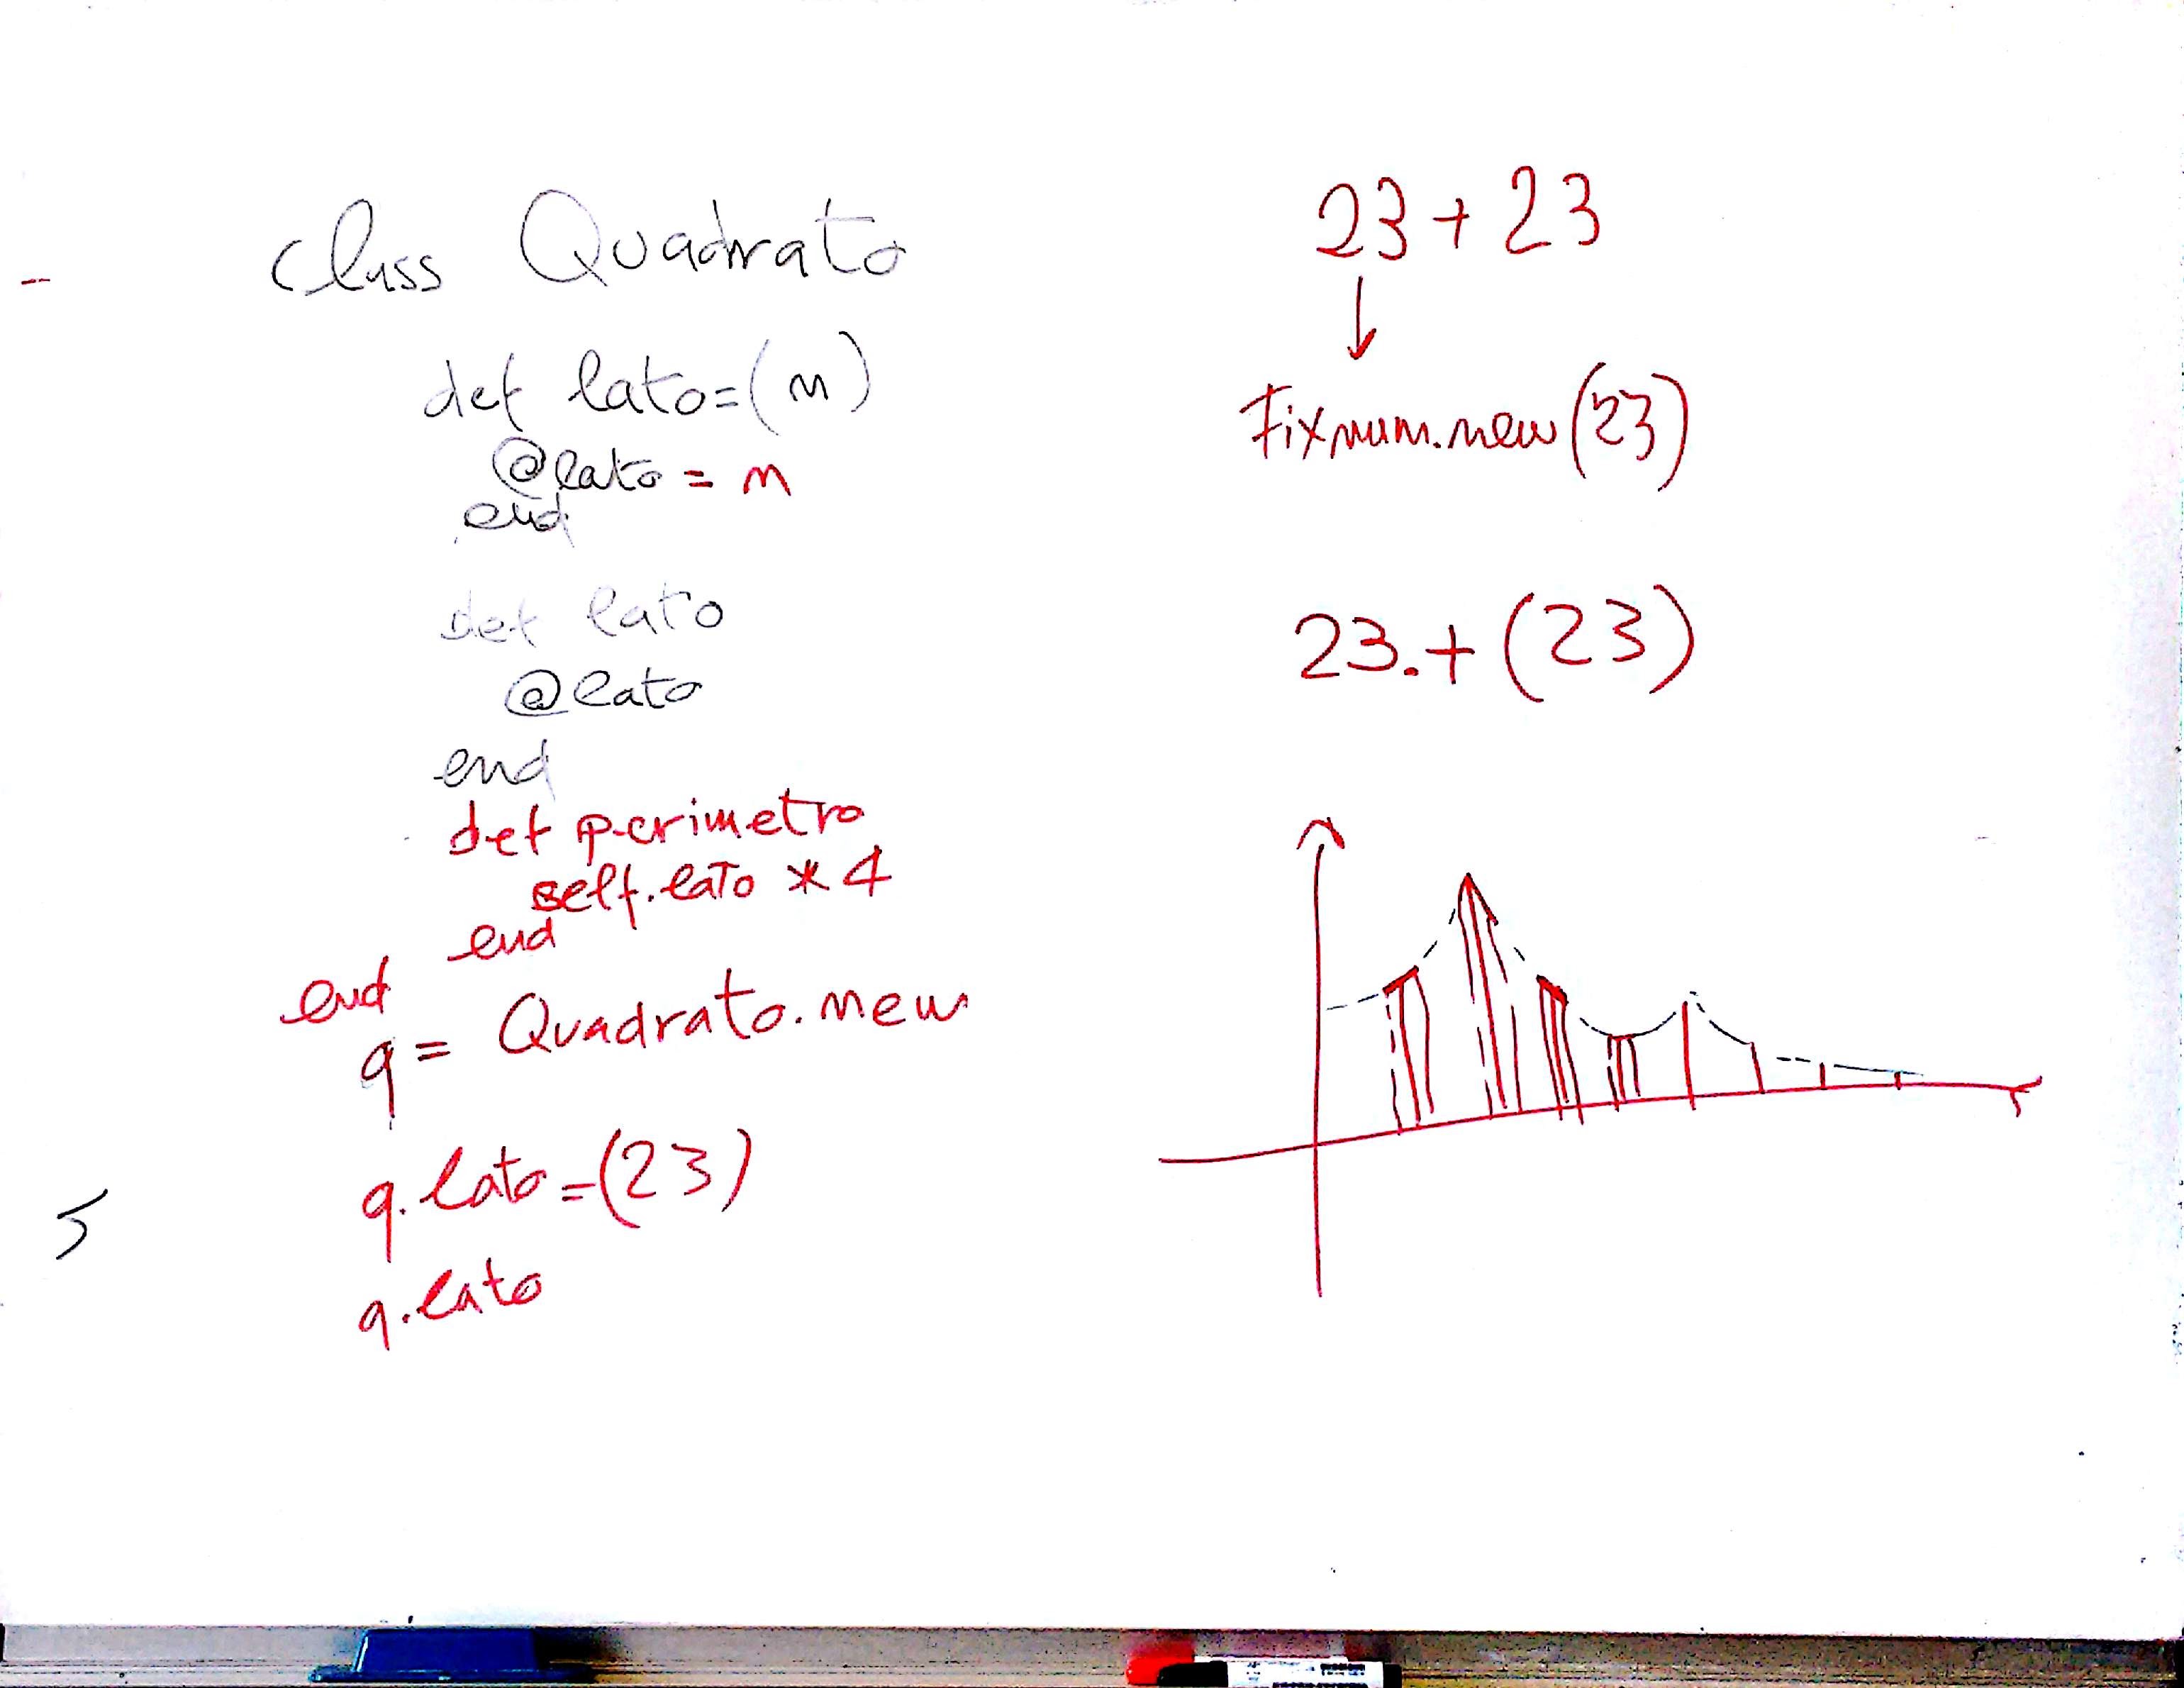 class Quadrato
def lato=(n)
@lato = n
end
def lato
@lato
end
def perimetro
self.lato * 4
end
end
q = Quadrato.new
q.lato=(23)
q.lato
23 + 23
Fixnum.new(23)
23.+(23)